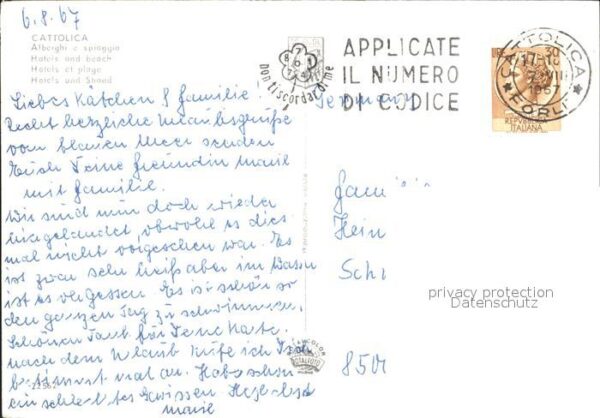 6.8.67
CATTOLICA
Alberghi e spiaggia
Hotels and beach
Hotels et plage
Hotels und Strand
Non ti scordar di me
APPLICATE
IL NUMERO
DI CODICE
CATTOLICA
FORLI'
1967
REPVBBLICA
ITALIANA
Germany
Liebes Kätchen & Familie.
Recht herzliche Urlaubsgrüße
vom blauen Meer senden
Euch Deine Freundin
mit Familie.
Wir sind nun doch wieder
hier gelandet, obwohl es dies
mal nicht vorgesehen war. Es
ist zwar sehr heiß aber im Wasser
ist es vergessen. Es ist schön so
den ganzen Tag zu schwimmen.
Schönen Dank für Deine Karte.
nach dem Urlaub rufe ich Dich
bestimmt mal an. Habe schon
ein schlechtes Gewissen
Fam
Hein
Sch
850
privacy protection
Datenschutz